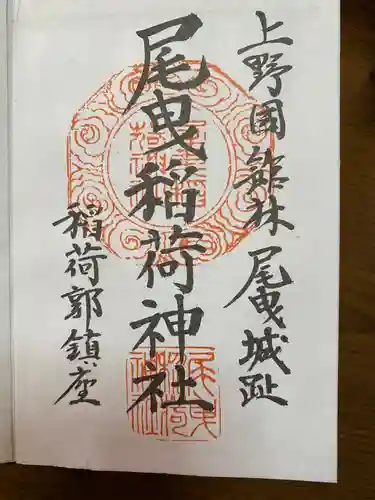 上野国館林尾曳城趾
尾曳稲荷神社
稲荷郭鎮座